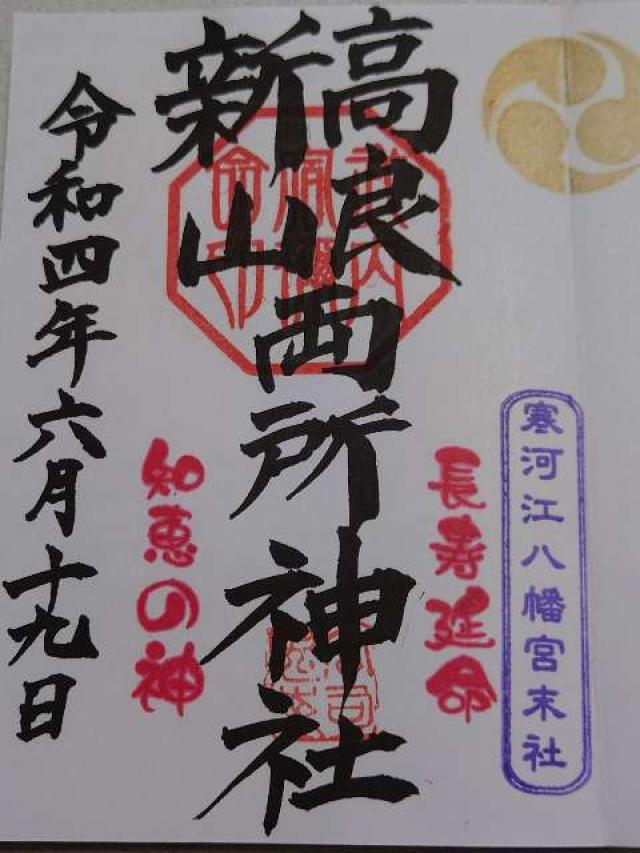 寒河江八幡宮末社
長寿延命
高良
新山
両所神社
知恵の神
令和四年六月十九日